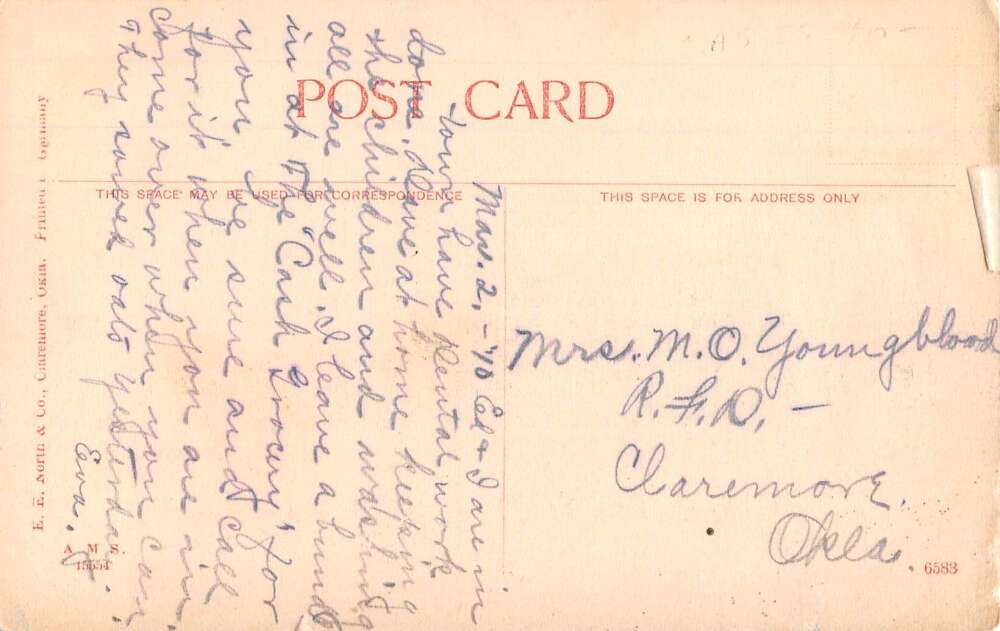 POST CARD
THIS SPACE MAY BE USED FOR CORRESPONDENCE
THIS SPACE IS FOR ADDRESS ONLY
Mar. 2, - '10 Ed & I are in
town have dental work
done. Have at home keeping
the children and washing
all are well. I leave a
in at "The Cash Grocery" for
you, be sure and call
for it when you are in.
Come over when you can.
They sowed oats Yesterday.
Eva.
Mrs. M. O. Youngblood
R. F. D. -
Claremore.
Okla.
E. E. North & Co., Claremore, Okla. Printed in Germany
A M S.
15554
6583